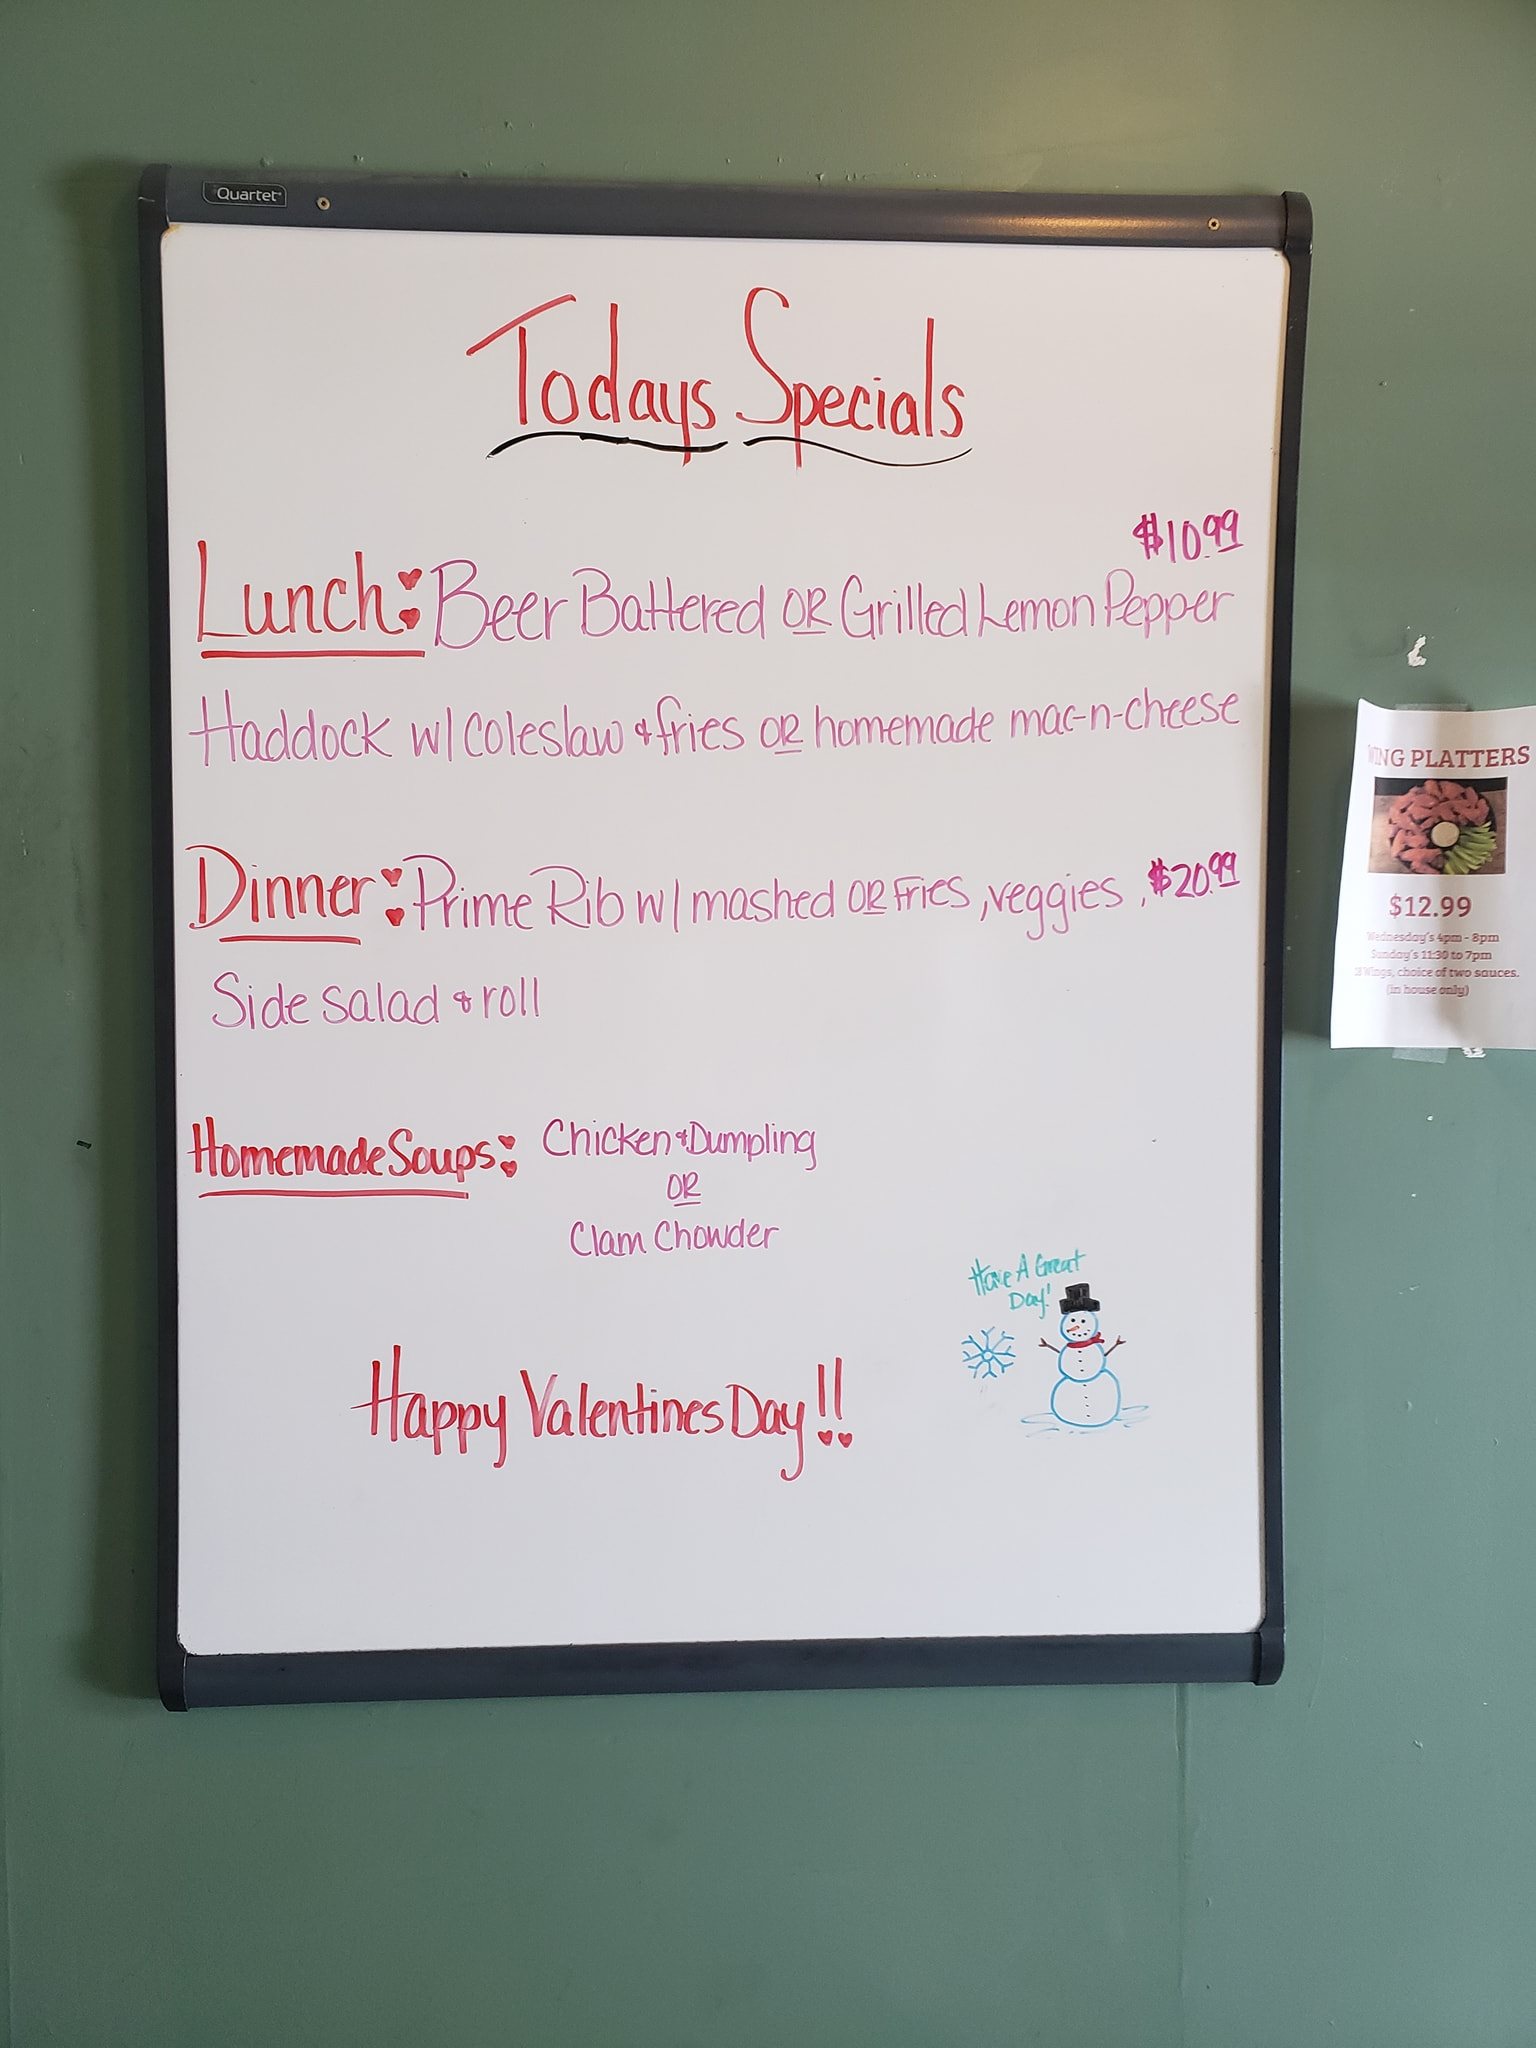 Quartet
Todays Specials
$10.99
Lunch: Beer Battered OR Grilled Lemon Pepper
Haddock w/ coleslaw & fries OR homemade mac-n-cheese
Dinner: Prime Rib w/ mashed OR fries, veggies, $20.99
Side salad & roll
Homemade Soups: Chicken & Dumpling
OR
Clam Chowder
Have A Great
Day!
Happy Valentines Day!!
WING PLATTERS
$12.99
Wednesday's 4pm - 8pm
Sunday's 11:30 to 7pm
Wings, choice of two sauces.
(in house only)